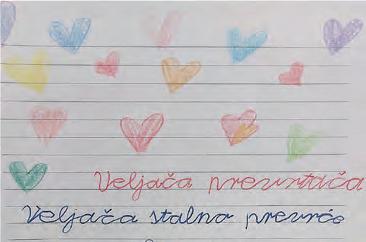 Veljača prevrtača
Veljača stalno prevrće